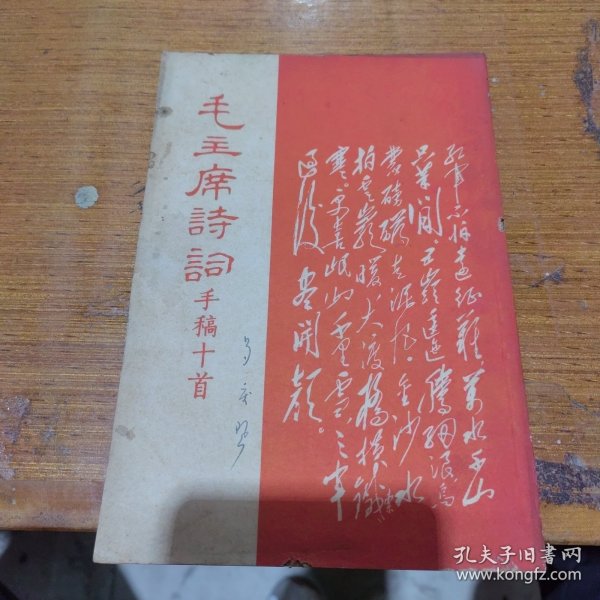 毛主席詩詞
手稿十首
红軍不怕遠征難萬水千山
只等闲。五嶺逶迤腾细浪烏
蒙磅礴走泥丸。金沙水
拍雲崖暖大渡橋横鐵索
寒。更喜岷山千里雪三军
过後尽开颜。
孔夫子旧书网
www.kongfz.com